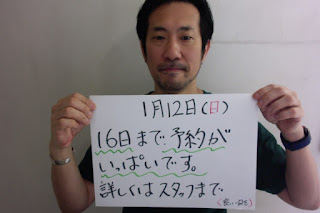 1月12日(日)
16日まで予約が
いっぱいです。
詳しくはスタッフまで